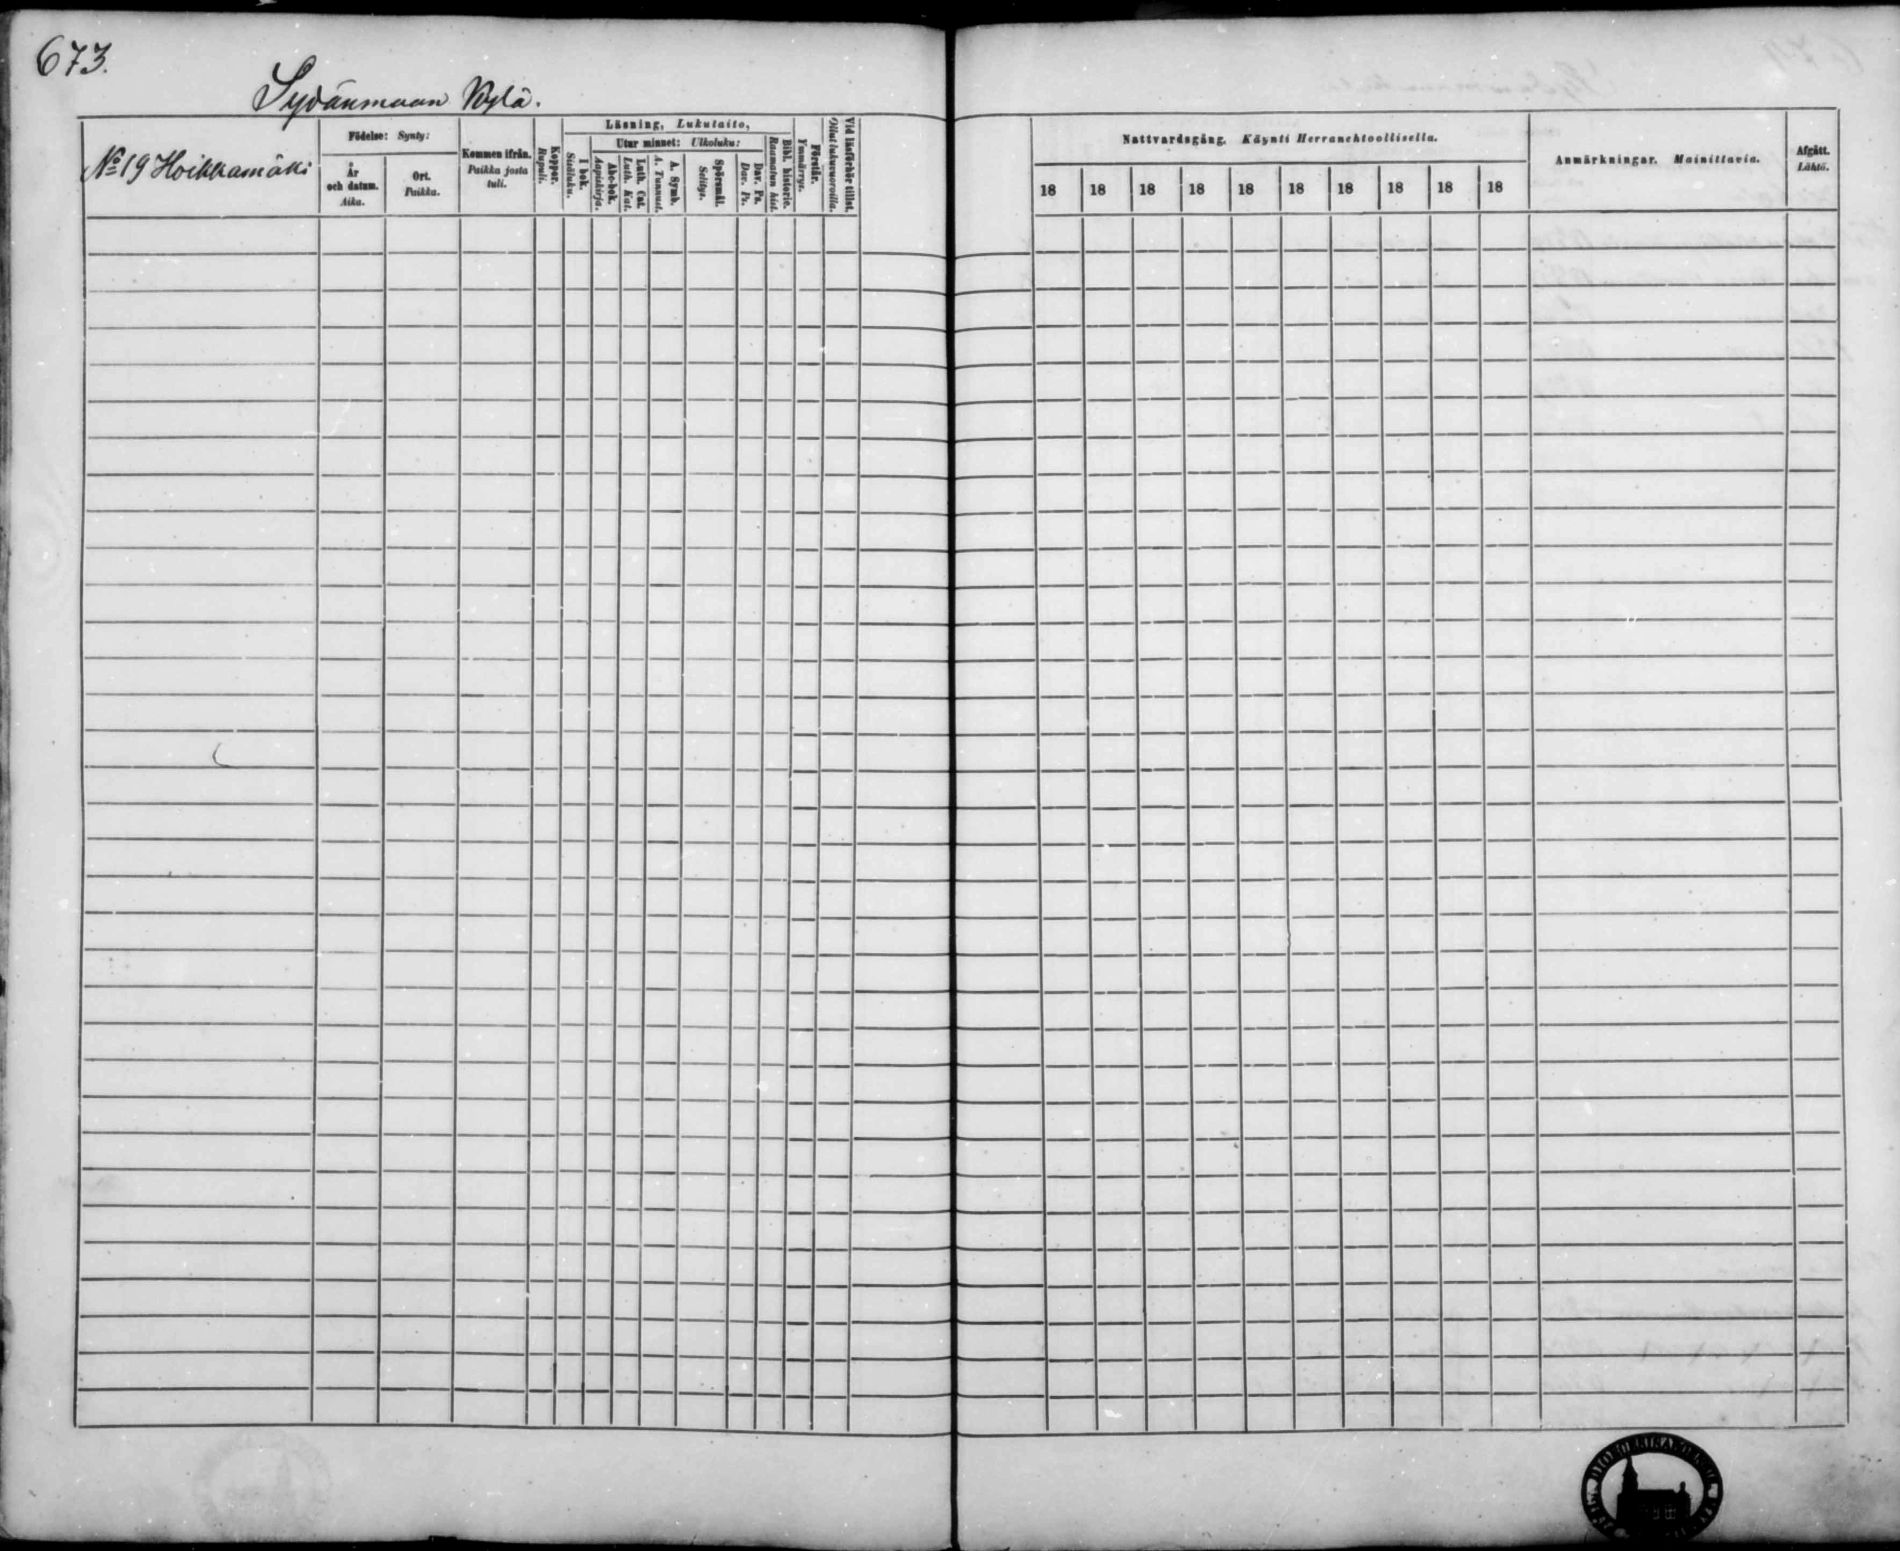 673.
Sydänmaan Kylä.
No 19 Hoikkamäki
Födelse: Synty:
År och datum. Aika.
Ort. Paikka.
Kommen ifrån. Paikka josta tuli.
Koppor. Rupuli.
Läsning, Lukutaito,
I bok. Sisäluku.
Utur minnet: Ulkoluku:
Abc-bok. Aapiskirja.
Luth. Cat. Luth. Kat.
A. Symb. A. Tunnust.
Spörsmål. Selitys.
Dav. Ps. Dav. Ps.
Bibl. historie. Raamatun hist.
Förstår. Ymmärrys.
Vid läsförhör tillst. Ollut lukuvuoroilla.
Nattvardsgång. Käynti Herranehtoollisella.
18 18 18 18 18 18 18 18 18 18
Anmärkningar. Mainittavia.
Afgått. Lähtö.